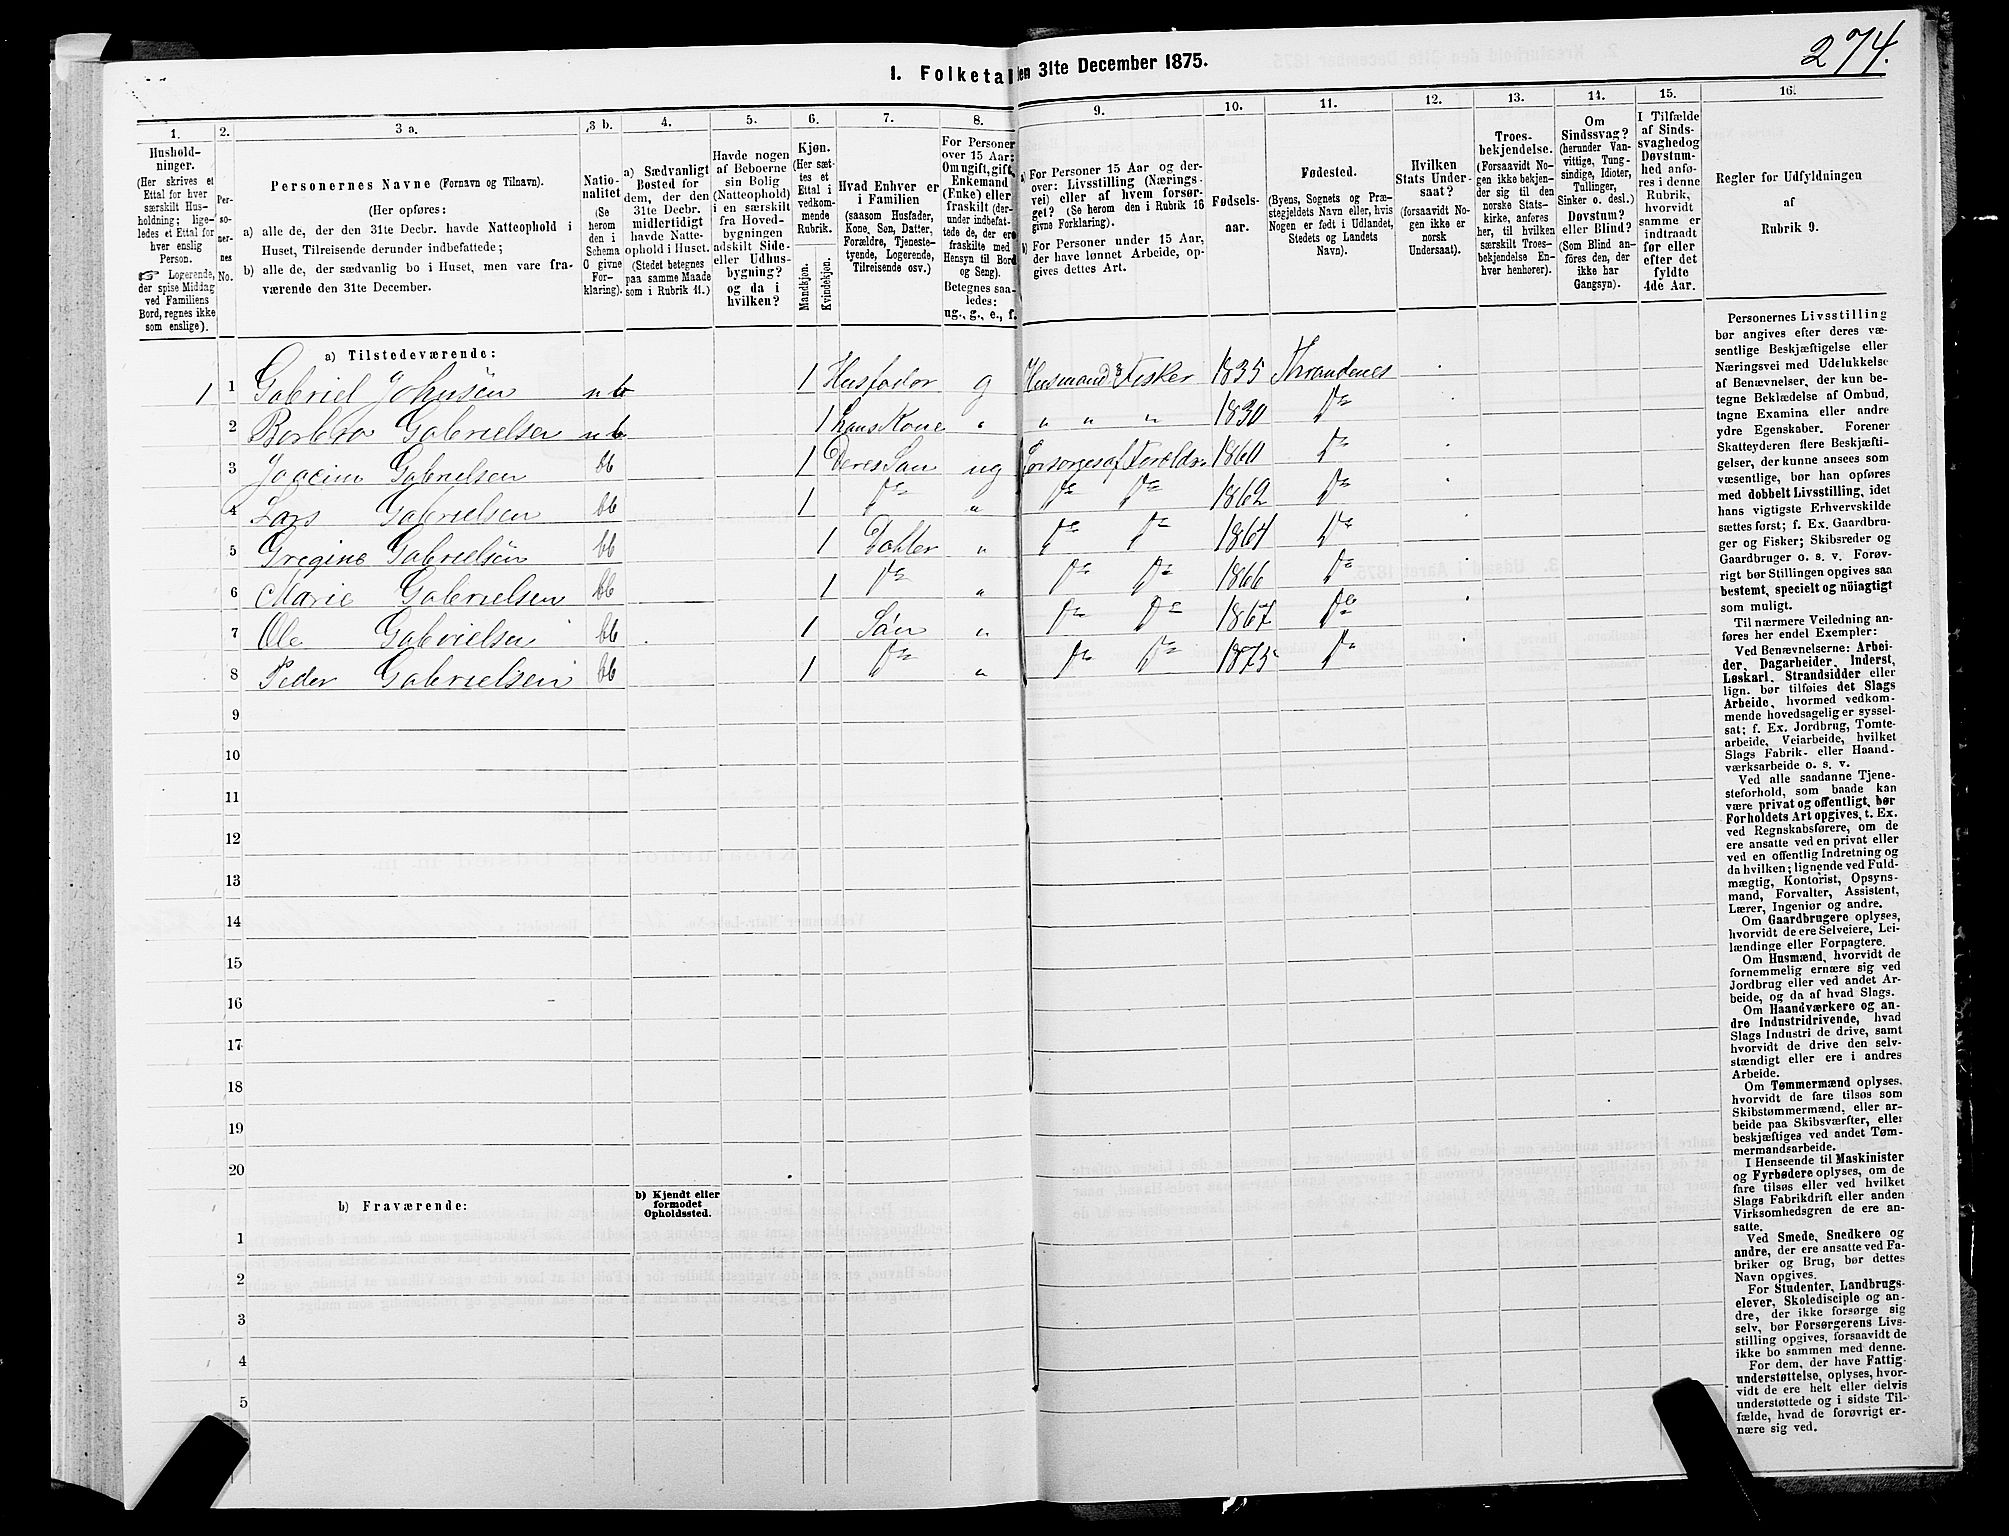 274.
1. Folketal den 31te December 1875.
1.
Hushold-
ninger.
(Her skrives et
Ettal for hver
særskilt Hus-
holdning; lige-
ledes et Ettal for
hver enslig
Person.
☞ Logerende,
der spise Middag
ved Familiens
Bord, regnes ikke
som enslige).
2.
Per-
so-
ner-
nes
No.
3 a.
Personernes Navne (Fornavn og Tilnavn).
(Her opføres:
a) alle de, der den 31te Decbr. havde Natteophold i
Huset, Tilreisende derunder indbefattede;
b) alle de, der sædvanlig bo i Huset, men vare fra-
værende den 31te December.
3 b.
Natio-
nalitet
(Se
herom
den i
Schema
G givne
For-
klaring).
4.
a) Sædvanligt
Bosted for
dem, der den
31te Decbr.
midlertidigt
havde Natte-
ophold i Huset.
(Stedet betegnes
paa samme Maade
som i Rubrik 11.)
5.
Havde nogen
af Beboerne
sin Bolig
(Natteophold)
i en særskilt
fra Hoved-
bygningen
adskilt Side-
eller Udhus-
bygning?
og da i
hvilken?
6.
Kjøn.
(Her sæt-
tes et
Ettal i
vedkom-
mende
Rubrik.
Mandkjøn.
Kvindekjøn.
7.
Hvad Enhver er
i Familien
(saasom Husfader,
Kone, Søn, Datter,
Forældre, Tjeneste-
tyende, Logerende,
Tilreisende osv.)
8.
For Personer
over 15 Aar:
Om ugift, gift,
Enkemand
(Enke) eller
fraskilt (der-
under indbefat-
tede de, der ere
fraskilte med
Hensyn til Bord
og Seng).
Betegnes saa-
ledes:
ug., g., e., f.
9.
a) For Personer 15 Aar og der-
over: Livsstilling (Nærings-
vei) eller af hvem forsør-
get? (Se herom den i Rubrik 16
givne Forklaring).
b) For Personer under 15 Aar,
der have lønnet Arbeide, op-
gives dettes Art.
10.
Fødsels-
aar.
11.
Fødested.
(Byens, Sognets og Præ-
stegjeldets Navn eller, hvis
Nogen er født i Udlandet,
Stedets og Landets
Navn).
12.
Hvilken
Stats Under-
saat?
(forsaavidt No-
gen ikke er
norsk
Undersaat).
13.
Troes-
bekjendelse.
(Forsaavidt No-
gen ikke bekjen-
der sig til den
norske Stats-
kirke, anføres
her, til hvilken
særskilt Troes-
bekjendelse En-
hver henhører).
14.
Om
Sindssvag?
(herunder Van-
vittige, Tung-
sindige, Idioter,
Tullinger,
Sinker o. desl.)
Døvstum?
eller Blind?
(Som Blind an-
føres den, der
ikke har
Gangsyn).
15.
I Tilfælde
af Sinds-
svaghed og
Døvstum-
hed anfø-
res i denne
Rubrik,
hvorvidt
samme er
indtraadt
før eller
efter det
fyldte
4de Aar.
16.
Regler for Udfyldningen
af
Rubrik 9.
a) Tilstedeværende:
1 1 Gabriel Johnsen ub 1 Husfader g Husmand & Fisker 1835 Throndenes
2 Berbro Gabrielsen ub 1 hans Kone " " " " 1830 Do
3 Joacim Gabrielsen bb 1 Deres Søn ug Forsørges af Foreldre 1860 Do
4 Lars Gabrielsen bb 1 Do " Do Do 1862 Do
5 Gregine Gabrielsen bb 1 Dotter " Do Do 1864 Do
6 Marie Gabrielsen bb 1 Do " Do Do 1866 Do
7 Ole Gabrielsen bb 1 Søn " Do Do 1867 Do
8 Peder Gabrielsen bb 1 Do " Do Do 1875 Do
9
10
11
12
13
14
15
16
17
18
19
20
b) Fraværende:
b) Kjendt eller
formodet
Opholdssted.
1
2
3
4
5
Personernes Livsstilling
bør angives efter deres væ-
sentlige Beskjæftigelse eller
Næringsvei med Udelukkelse
af Benævnelser, der kun be-
tegne Beklædelse af Ombud,
tagne Examina eller andre
ydre Egenskaber. Forener
Skatteyderen flere Beskjæfti-
gelser, der kunne ansees som
væsentlige, bør han opføres
med dobbelt Livsstilling, idet
hans vigtigste Erhvervskilde
sættes først; f. Ex. Gaardbru-
ger og Fisker; Skibsreder og
Gaardbruger o. s. v. Forøv-
rigt bør Stillingen opgives saa
bestemt, specielt og nöiagtigt
som muligt.
Til nærmere Veiledning an-
føres her endel Exempler:
Ved Benævnelserne: Arbei-
der, Dagarbeider, Inderst,
Løskarl, Strandsidder eller
lign. bør tilføies det Slags
Arbeide, hvormed vedkom-
mende hovedsagelig er syssel-
sat; f. Ex. Jordbrug, Tomte-
arbeide, Veiarbeide, hvilket
Slags Fabrik- eller Haand-
værksarbeide o. s. v.
Ved alle saadanne Tjene-
steforhold, som baade kan
være privat og offentligt, bør
Forholdets Art opgives, t. Ex.
ved Regnskabsførere, om de
ere ansatte ved en privat eller
ved en offentlig Indretning og
da hvilken; lignende ved Fuld-
mægtig, Kontorist, Opsyns-
mand, Forvalter, Assistent,
Lærer, Ingeniør og andre.
Om Gaardbrugere oplyses,
hvorvidt de ere Selveiere, Lei-
lændinge eller Forpagtere.
Om Husmænd, hvorvidt de
fornemmelig ernære sig ved
Jordbrug eller ved andet Ar-
beide, og da af hvad Slags.
Om Haandværkere og an-
dre Industridrivende, hvad
Slags Industri de drive, samt
hvorvidt de drive den selv-
stændigt eller ere i andres
Arbeide.
Om Tømmermænd oplyses,
hvorvidt de fare tilsøs som
Skibstømmermænd, eller ar-
beide paa Skibsværfter, eller
beskjæftiges ved andet Tøm-
mermandsarbeide.
I Henseende til Maskinister
og Fyrbødere oplyses, om de
fare tilsøs eller ved hvilket
Slags Fabrikdrift eller anden
Virksomhedsgren de ere an-
satte.
Ved Smede, Snedkere og
andre, der ere ansatte ved Fa-
briker og Brug, bør dettes
Navn opgives.
For Studenter, Landbrugs-
elever, Skoledisciple og an-
dre, der ikke forsørge sig
selv, bør Forsørgerens Livs-
stilling opgives, forsaavidt de
ikke bo sammen med denne.
For dem, der have Fattig-
understøttelse, oplyses, hvor-
vidt de ere helt eller delvis
understøttede og i sidste Til-
fælde, hvad de forøvrigt er-
nære sig ved.